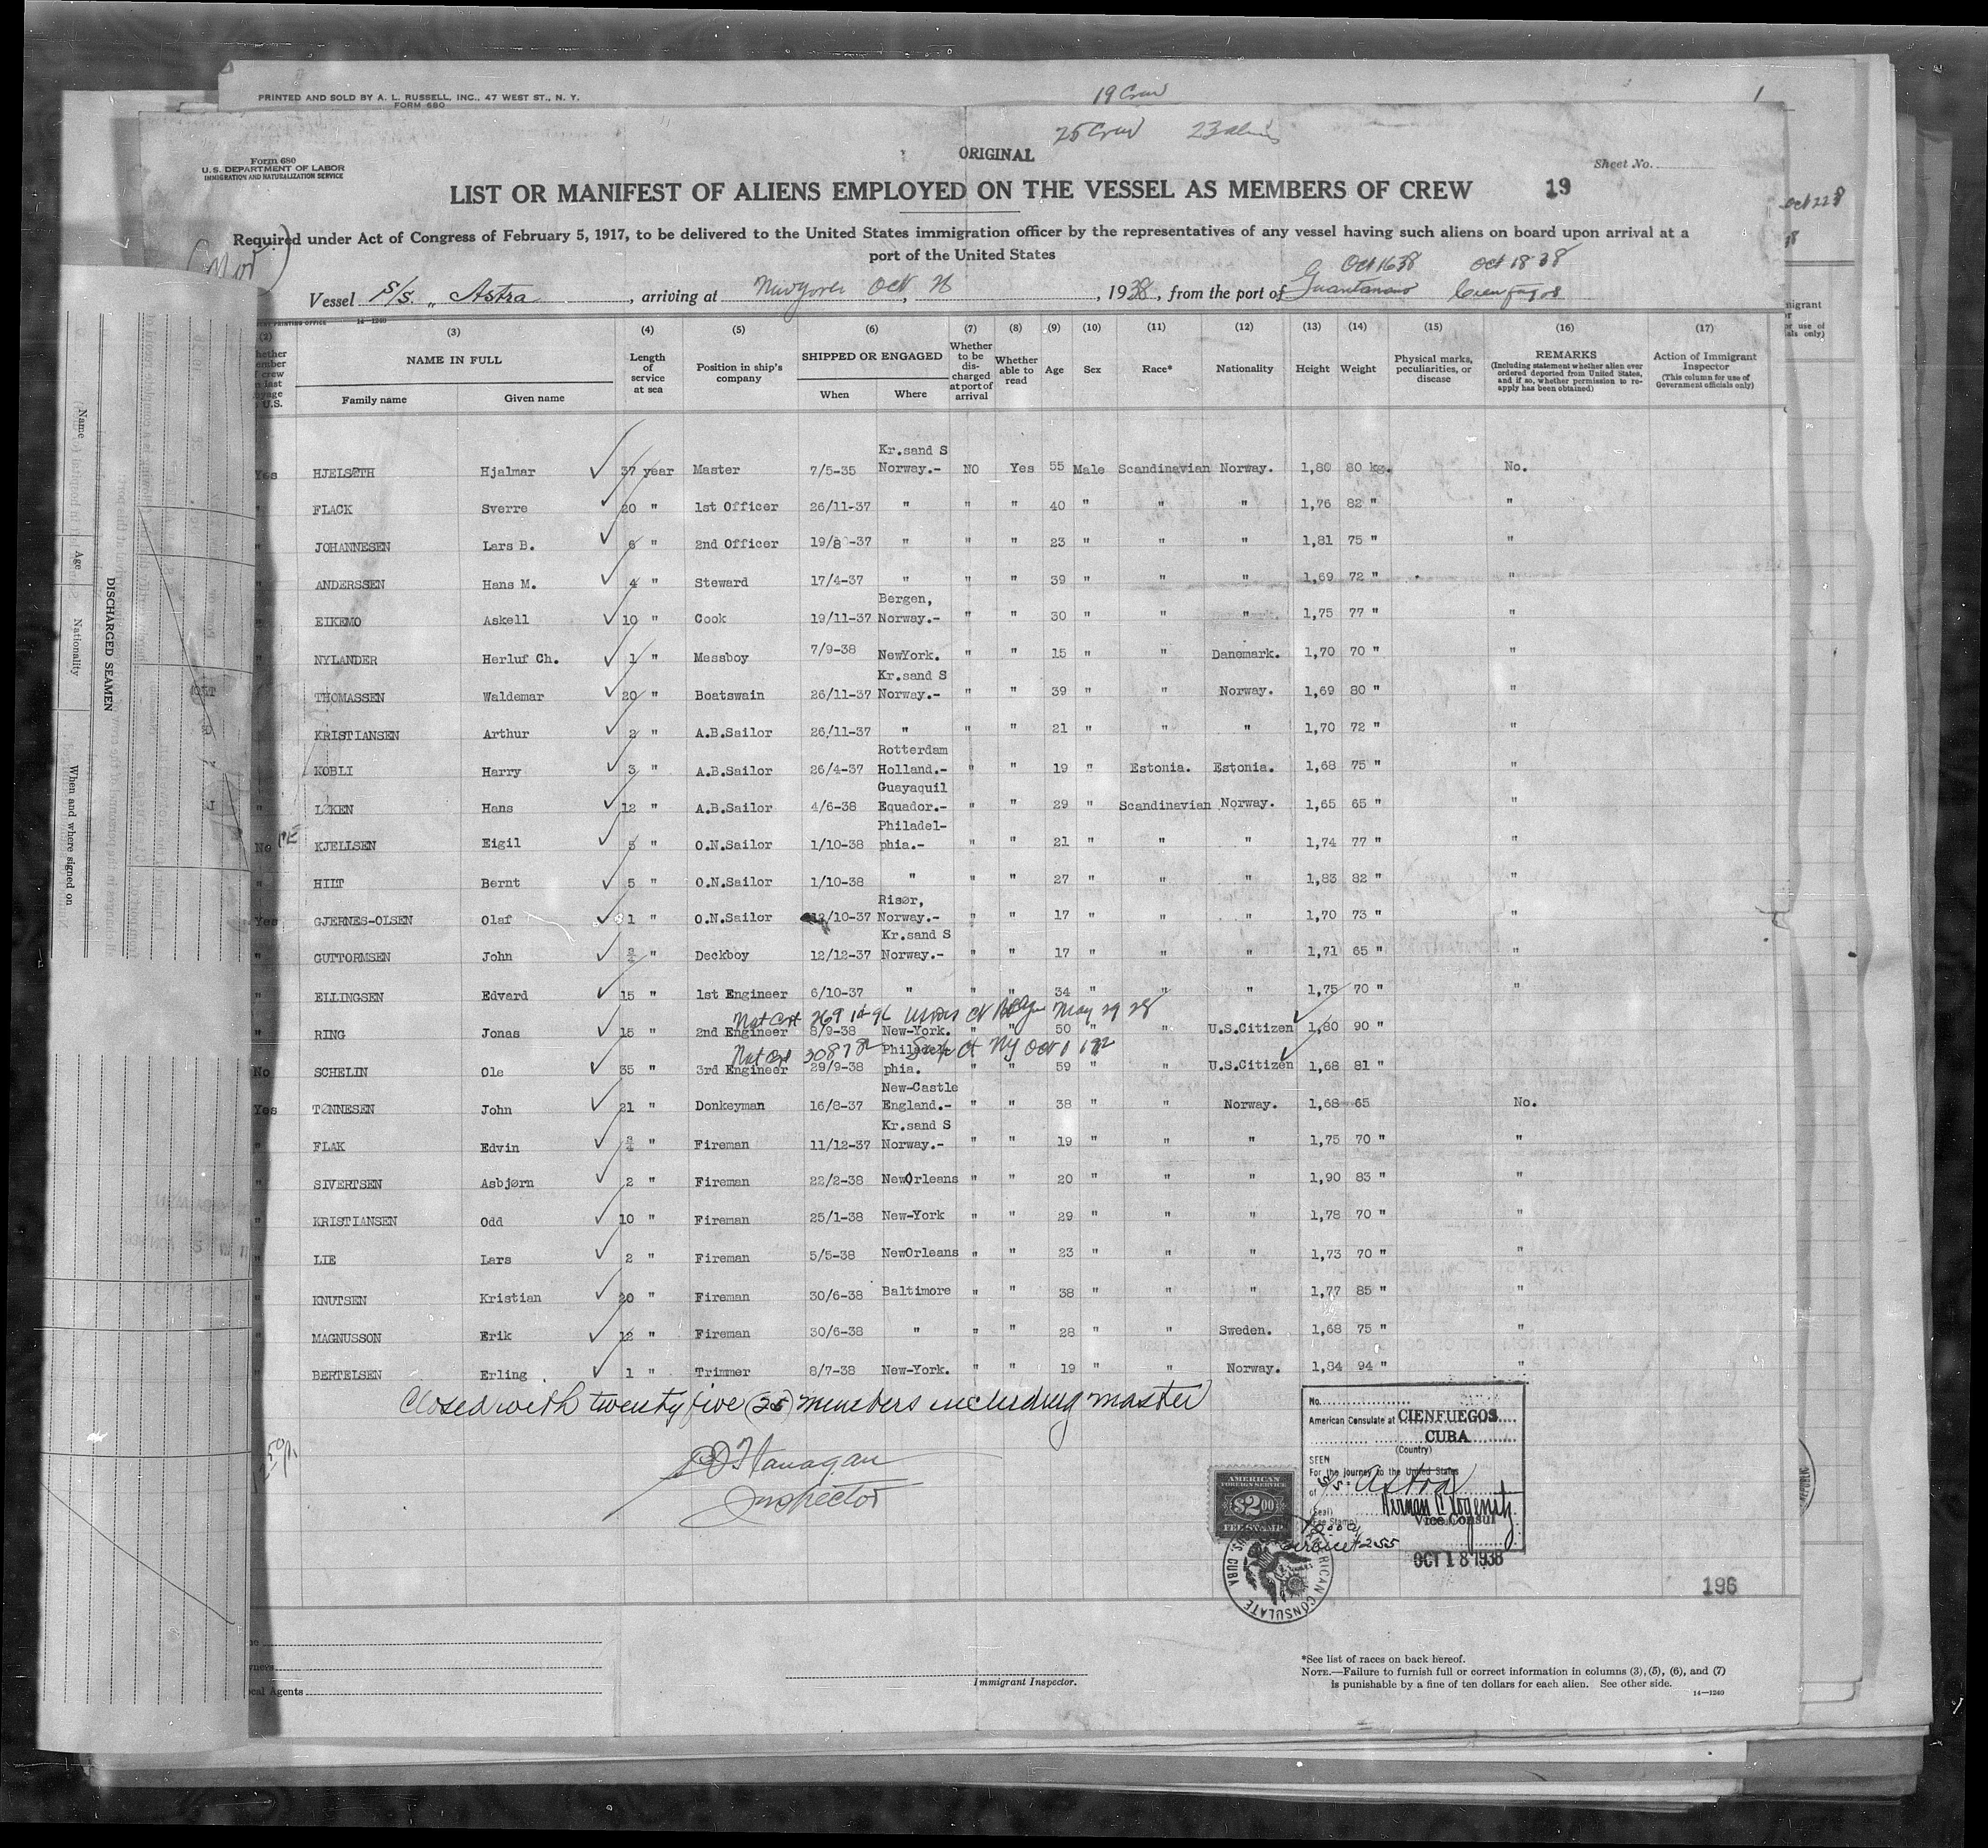 PRINTED AND SOLD BY A. L. RUSSELL, INC., 47 WEST ST., N. Y.
FORM 680
19 Crew
1
25 Crew 23 aliens
Form 680
U.S. DEPARTMENT OF LABOR
IMMIGRATION AND NATURALIZATION SERVICE
ORIGINAL
Sheet No.
LIST OR MANIFEST OF ALIENS EMPLOYED ON THE VESSEL AS MEMBERS OF CREW
19
Required under Act of Congress of February 5, 1917, to be delivered to the United States immigration officer by the representatives of any vessel having such aliens on board upon arrival at a
port of the United States
Oct 16 38 Oct 18 38
Vessel S/S. "Astra, arriving at New York Oct, 1938, from the port of Guantanamo Cienfuegos
14-1240
(2) (3) (4) (5) (6) (7) (8) (9) (10) (11) (12) (13) (14) (15) (16) (17)
NAME IN FULL
Family name Given name
Length of service at sea
Position in ship's company
SHIPPED OR ENGAGED
When Where
Whether to be discharged at port of arrival
Whether able to read
Age Sex Race* Nationality Height Weight
Physical marks, peculiarities, or disease
REMARKS
(Including statement whether alien ever ordered deported from United States, and if so, whether permission to reapply has been obtained)
Action of Immigrant Inspector
(This column for use of Government officials only)
Kr.sand S
Yes HJELSÆTH Hjalmar 37 year Master 7/5-35 Norway.- NO Yes 55 Male Scandinavian Norway. 1,80 80 kg. No.
" FLACK Sverre 20 " 1st Officer 26/11-37 " " " 40 " " " 1,76 82 " "
" JOHANNESEN Lars B. 6 " 2nd Officer 19/8 -37 " " " 23 " " " 1,81 75 " "
" ANDERSSEN Hans M. 4 " Steward 17/4-37 " " " 39 " " " 1,69 72 " "
Bergen,
" EIKEMO Askell 10 " Cook 19/11-37 Norway.- " " 30 " " " 1,75 77 " "
" NYLANDER Herluf Ch. 1 " Messboy 7/9-38 NewYork. " " 15 " " Danemark. 1,70 70 " "
Kr.sand S
" THOMASSEN Waldemar 20 " Boatswain 26/11-37 Norway.- " " 39 " " Norway. 1,69 80 " "
" KRISTIANSEN Arthur 2 " A.B.Sailor 26/11-37 " " " 21 " " " 1,70 72 " "
Rotterdam
" KOBLI Harry 3 " A.B.Sailor 26/4-37 Holland.- " " 19 " Estonia. Estonia. 1,68 75 " "
Guayaquil
" LØKEN Hans 12 " A.B.Sailor 4/6-38 Equador.- " " 29 " Scandinavian Norway. 1,65 65 " "
Philadel-
No KJELLSEN Eigil 5 " O.N.Sailor 1/10-38 phia.- " " 21 " " " 1,74 77 " "
" HILT Bernt 5 " O.N.Sailor 1/10-38 " " " 27 " " " 1,83 82 " "
Risør,
Yes GJERNES-OLSEN Olaf 1 " O.N.Sailor 12/10-37 Norway.- " " 17 " " " 1,70 73 " "
Kr.sand S
" GUTTORMSEN John 3/4 " Deckboy 12/12-37 Norway.- " " 17 " " " 1,71 65 " "
" ELLINGSEN Edvard 15 " 1st Engineer 6/10-37 " " " 34 " " " 1,75 70 " "
Nat Cert May 29 28
" RING Jonas 15 " 2nd Engineer 8/9-38 New-York. " " 50 " " U.S.Citizen 1,80 90 "
Nat Cert Ct NY Oct
Philadel-
No SCHELIN Ole 35 " 3rd Engineer 29/9-38 phia. " " 59 " " U.S.Citizen 1,68 81 "
New-Castle
Yes TØNNESEN John 21 " Donkeyman 16/8-37 England.- " " 38 " " Norway. 1,68 65 No.
Kr.sand S
" FLAK Edvin 3/4 " Fireman 11/12-37 Norway.- " " 19 " " " 1,75 70 " "
" SIVERTSEN Asbjørn 2 " Fireman 22/2-38 NewOrleans " " 20 " " " 1,90 83 " "
" KRISTIANSEN Odd 10 " Fireman 25/1-38 New-York " " 29 " " " 1,78 70 " "
" LIE Lars 2 " Fireman 5/5-38 NewOrleans " " 23 " " " 1,73 70 " "
" KNUTSEN Kristian 20 " Fireman 30/6-38 Baltimore " " 38 " " " 1,77 85 " "
" MAGNUSSON Erik 12 " Fireman 30/6-38 " " " 28 " " Sweden. 1,68 75 " "
" BERTELSEN Erling 1 " Trimmer 8/7-38 New-York. " " 19 " " Norway. 1,84 94 " "
Closed with twenty five (25) members including master
Flanagan
Inspector
No.
American Consulate at CIENFUEGOS
CUBA
(Country)
SEEN
For the journey to the United States
of S/S. Astra
(Seal)
(Fee Stamp)
Vice Consul
OCT 18 1938
AMERICAN
FOREIGN SERVICE
$2.00
FEE STAMP
AMERICAN CONSULATE
CUBA
196
Agents
Immigrant Inspector.
*See list of races on back hereof.
NOTE.—Failure to furnish full or correct information in columns (3), (5), (6), and (7)
is punishable by a fine of ten dollars for each alien. See other side.
14-1240
DISCHARGED SEAMEN
Name
Age
Nationality
When and where signed on